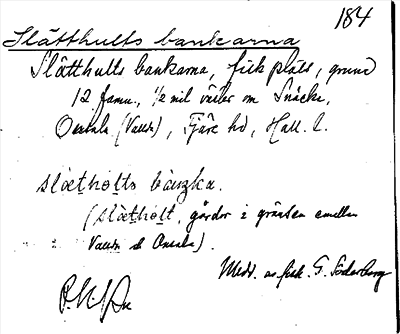 184
Slätthults bankarna
Slätthults bankarna, fisk plats, grund
12 famn., 1/2 mil väster om Snäcke,
Onsala (Vallda), Fjäre hd, Hall. l.
slætholts bànzka.
(slætholt, gårdar i gränsen emellan
Vallda & Onsala).
Medd. av fisk. G. Söderberg